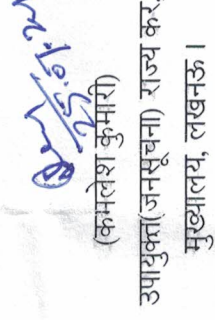 25.07.24
(कमलेश कुमारी)
उपायुक्त(जनसूचना) राज्य कर,
मुख्यालय, लखनऊ।